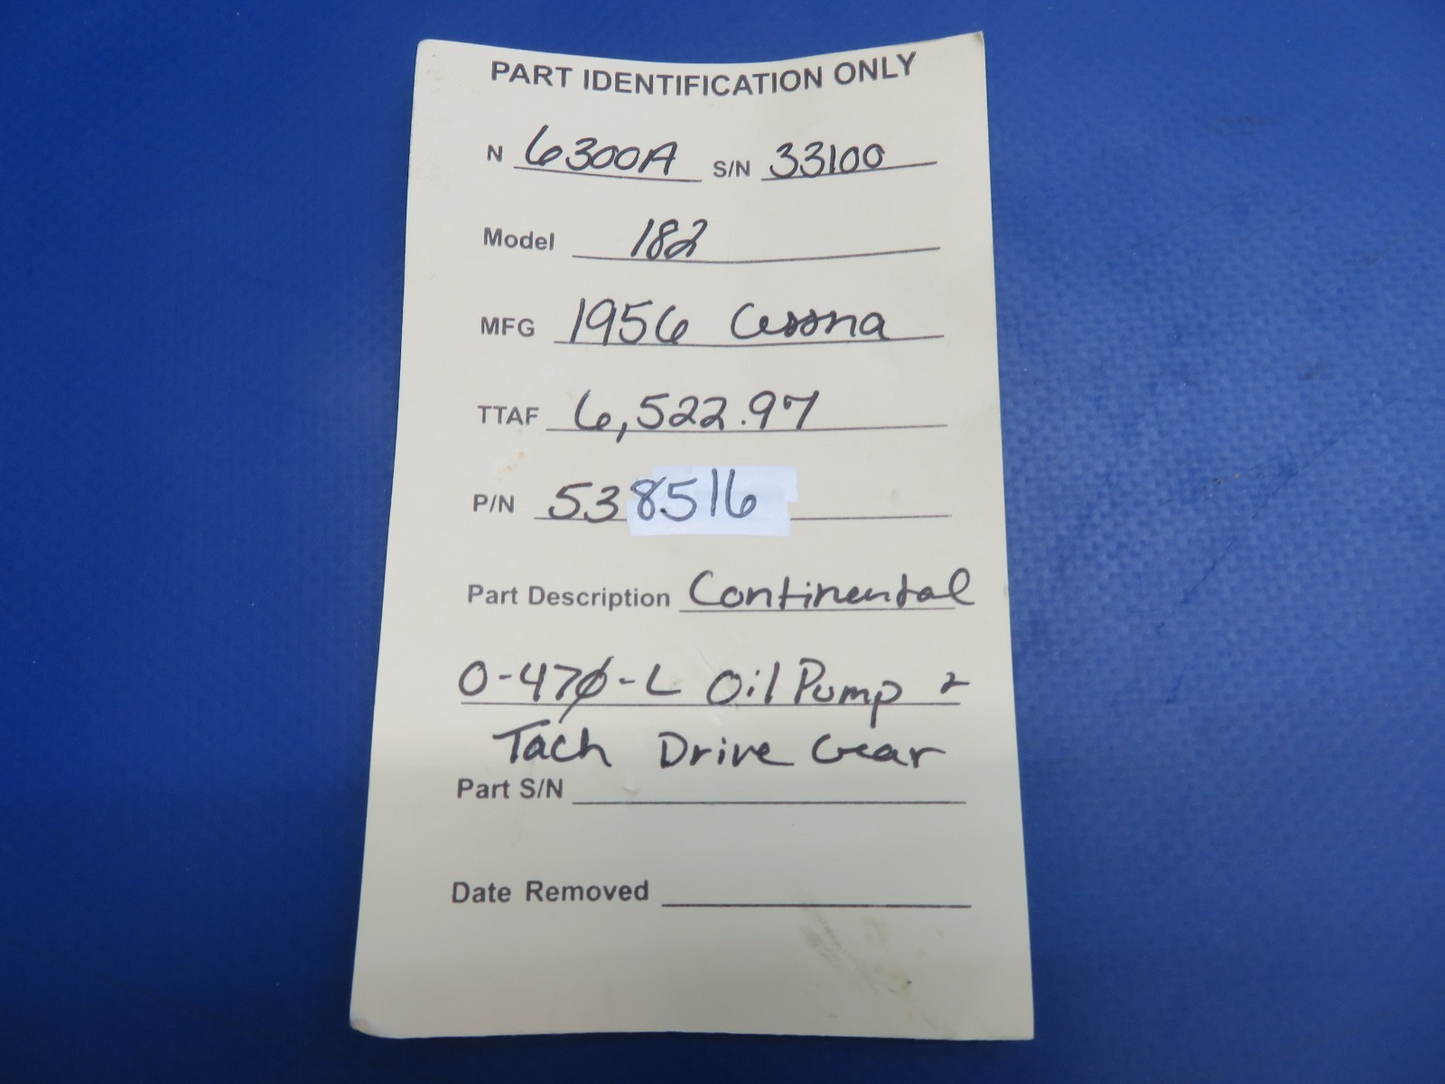 PART IDENTIFICATION ONLY
N 6300A S/N 33100
Model 182
MFG 1956 Cessna
TTAF 6,522.97
P/N 538516
Part Description Continental
O-470-L Oil Pump &
Tach Drive Gear
Part S/N
Date Removed